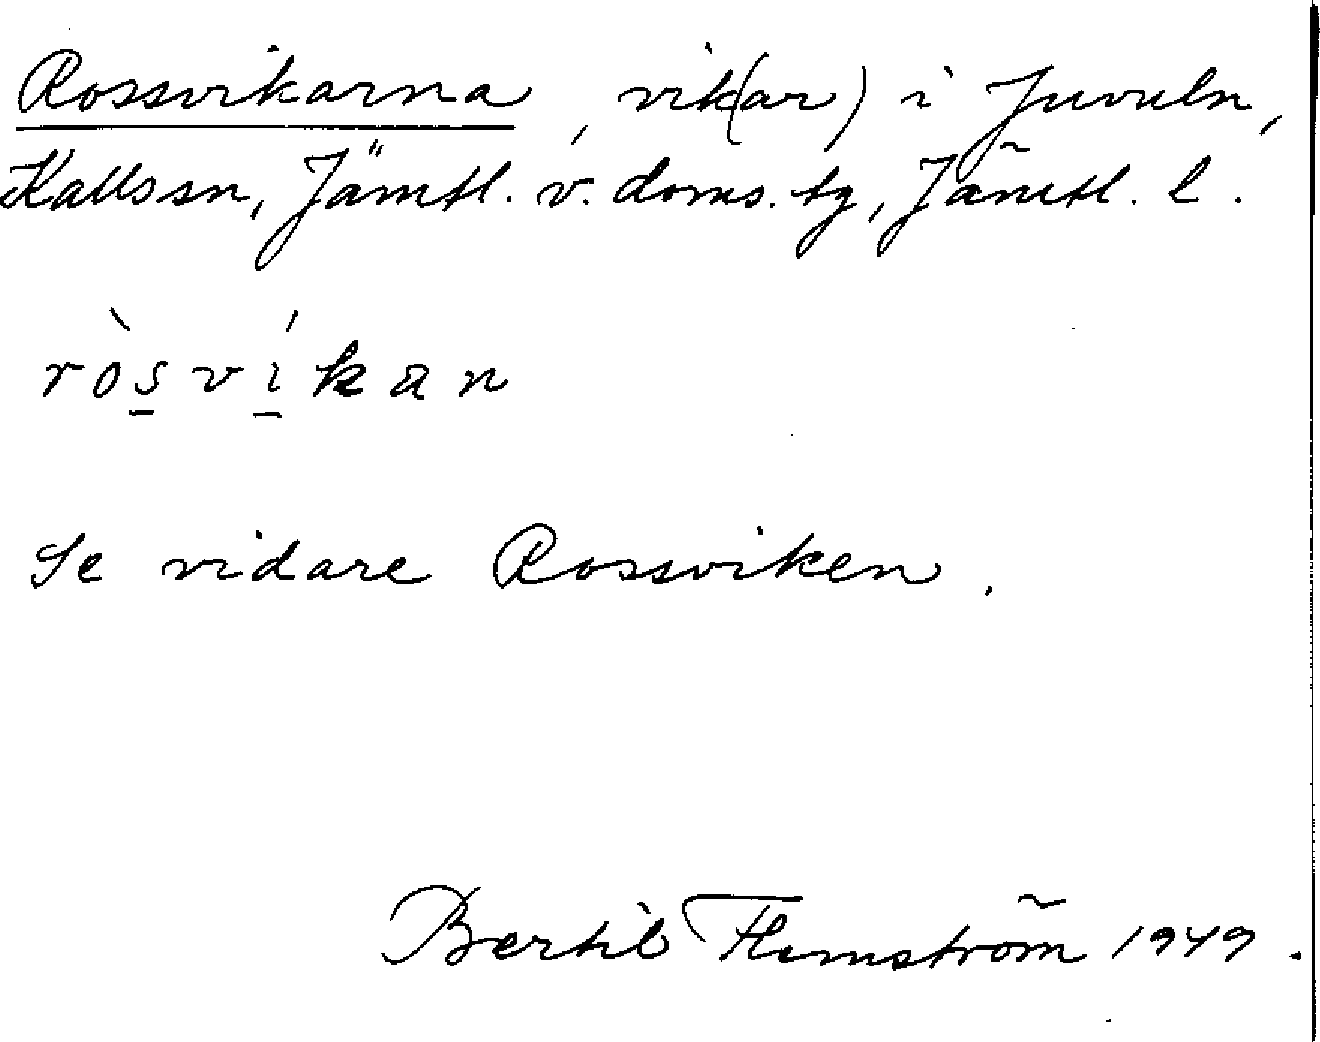 Rossvikarna, vik(ar) i Juvuln,
Kallssn, Jämtl. v. doms. tg, Jämtl. l.
ròsvíkan
Se vidare Rossviken.
Bertil Flemström 1949.